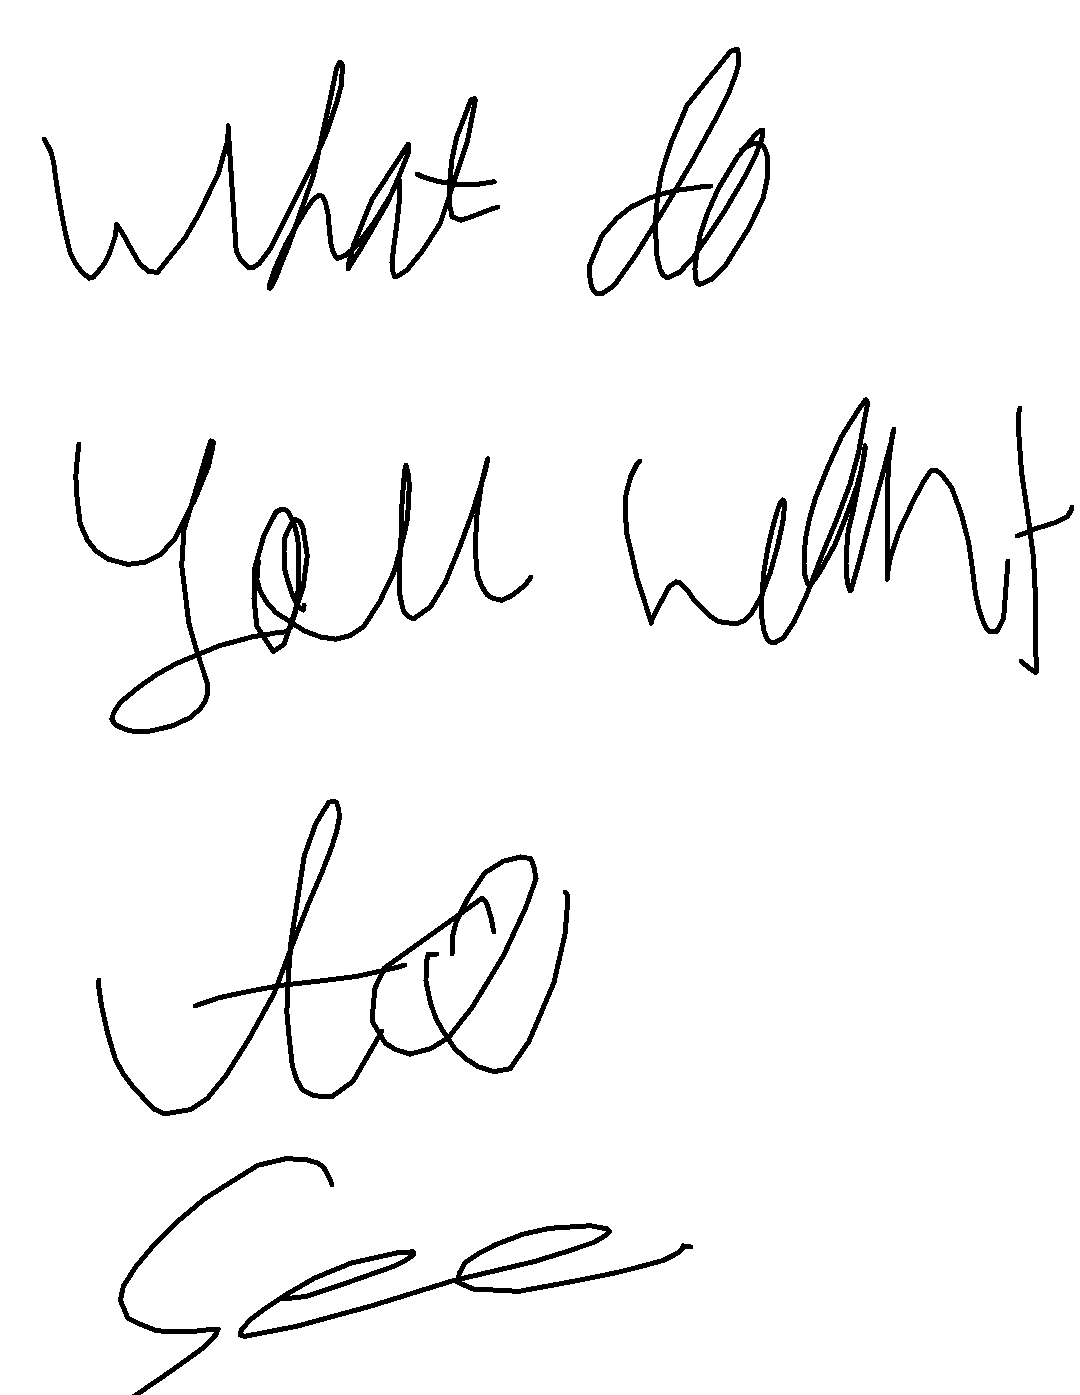 What do
you want
to
see